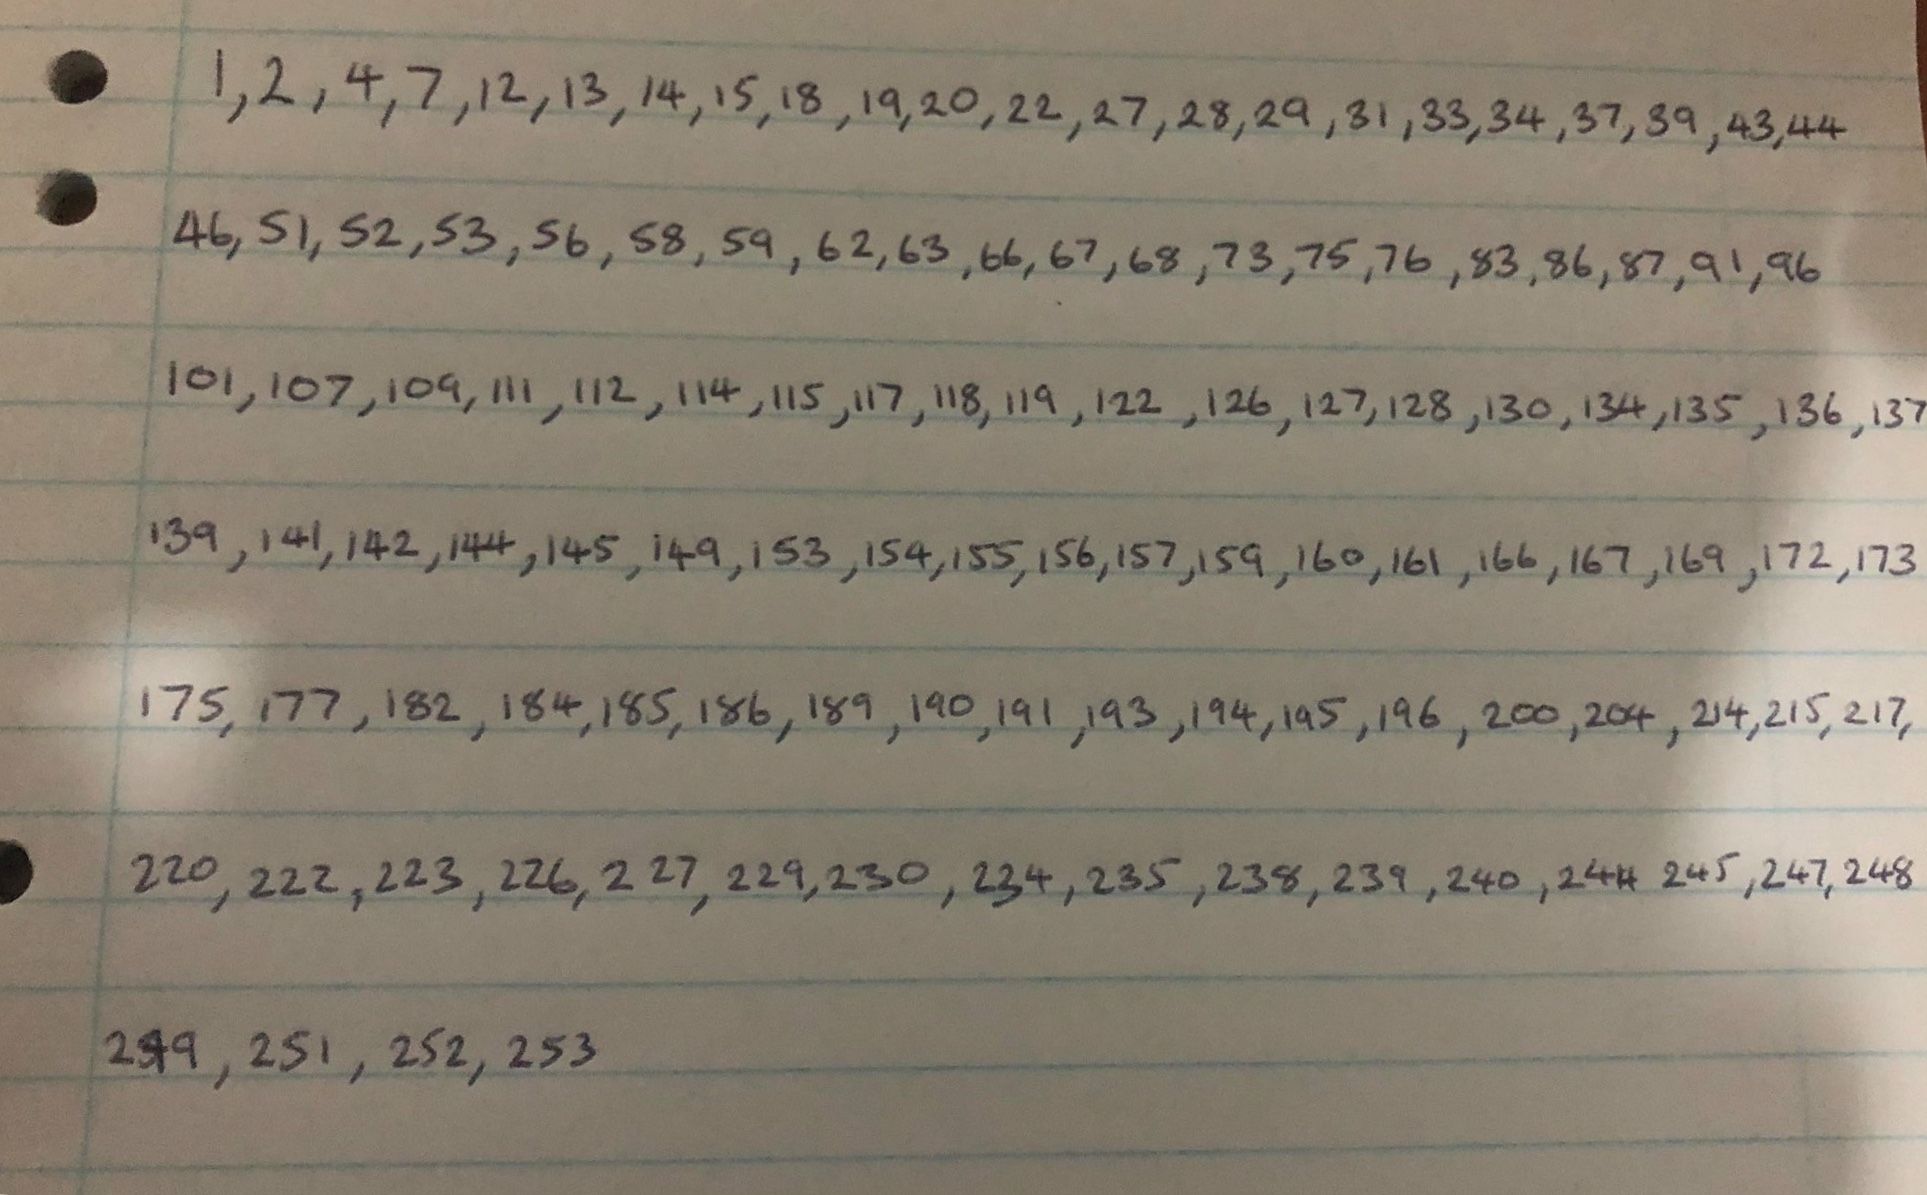 1,2,4,7,12,13,14,15,18,19,20,22,27,28,29,31,33,34,37,39,43,44
46,51,52,53,56,58,59,62,63,66,67,68,73,75,76,83,86,87,91,96
101,107,109,111,112,114,115,117,118,119,122,126,127,128,130,134,135,136,137
139,141,142,144,145,149,153,154,155,156,157,159,160,161,166,167,169,172,173
175,177,182,184,185,186,189,190,191,193,194,195,196,200,204,214,215,217,
220,222,223,226,227,229,230,234,235,238,239,240,244 245,247,248
249,251,252,253